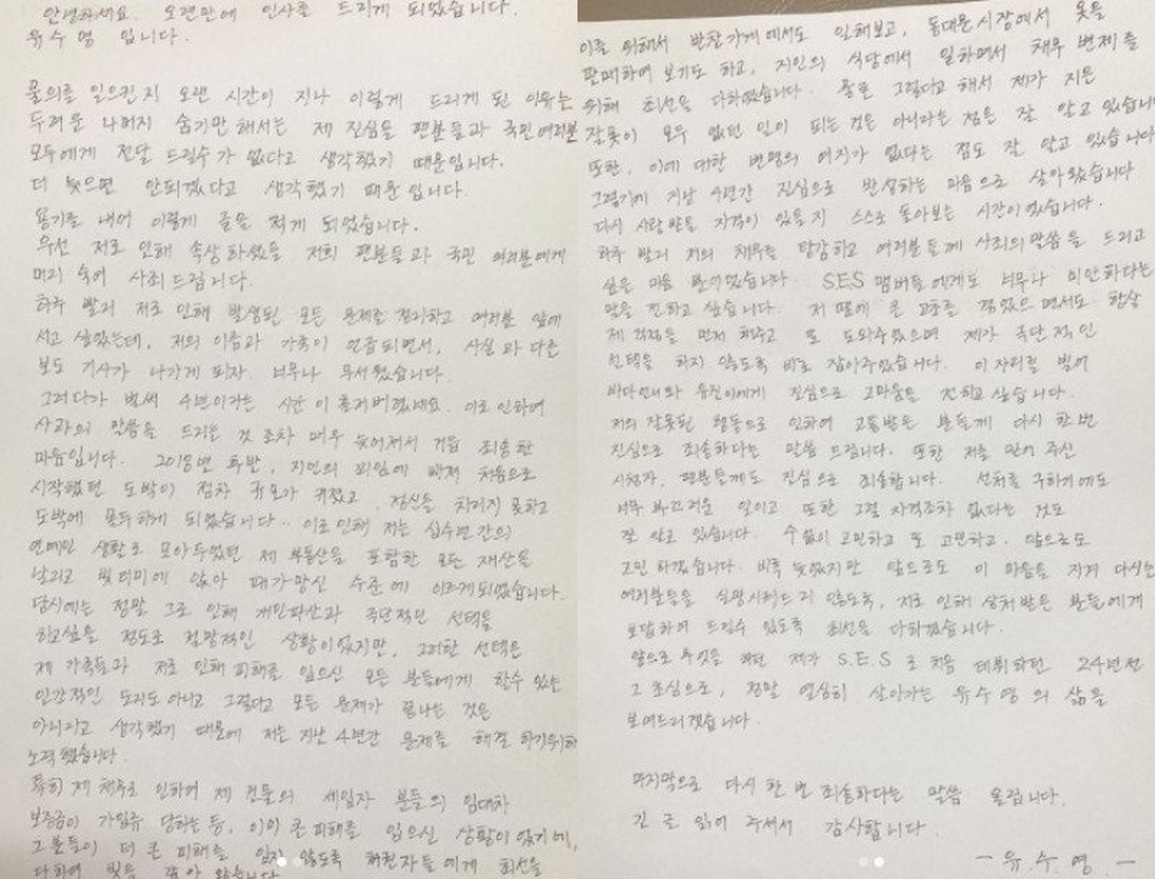 안녕하세요. 오랜만에 인사를 드리게 되었습니다.
유수영 입니다.
물의를 일으킨지 오랜 시간이 지나 이렇게 드리게 된 이유는
두려운 나머지 숨기만 해서는 제 진심을 팬분들과 국민여러분
모두에게 전달 드릴수가 없다고 생각했기 때문입니다.
더 늦으면 안되겠다고 생각했기 때문입니다.
용기를 내어 이렇게 글을 적게 되었습니다.
우선 저로 인해 속상하셨을 저희 팬분들과 국민 여러분에게
머리 숙여 사죄드립니다.
하루 빨리 저로 인해 발생된 모든 문제를 정리하고 여러분 앞에
서고 싶었는데, 저의 이름과 가족이 언급되면서, 사실과 다른
보도 기사가 나가게 되자. 너무나 무서웠습니다.
그러다가 벌써 4년이라는 시간이 흘러버렸네요. 이로 인하여
사과의 말씀을 드리는 것 조차 매우 늦어져서 거듭 죄송한
마음입니다. 2018년 후반, 지인의 꾀임에 빠져 처음으로
시작했던 도박이 점차 규모가 커졌고, 정신을 차리지 못하고
도박에 몰두하게 되었습니다.. 이로 인해 저는 십수년간의
연예인 생활로 모아두었던 제 부동산을 포함한 모든 재산을
날리고 빚더미에 앉아 패가망신 수준에 이르게되었습니다.
당시에는 정말 그로 인해 개인파산과 극단적인 선택을
하고싶을 정도로 절망적인 상황이었지만, 그러한 선택은
제 가족들과 저로 인해 피해를 입으신 모든 분들에게 할수 있는
인간적인 도리도 아니고 그렇다고 모든 문제가 끝나는 것은
아니라고 생각했기 때문에 저는 지난 4년간 문제를 해결 하기위해
노력했습니다.
특히 제 채무로 인하여 제 건물의 세입자 분들의 임대차
보증금이 가압류 당하는 등, 이미 큰 피해를 입으신 상황이었기에,
그분들이 더 큰 피해를 입지 않도록 채권자들에게 최선을
다하여 빚을 갚아 왔습니다.
이를 위해서 반찬가게에서도 일해보고, 동대문시장에서 옷을
판매하여 보기도 하고, 지인의 식당에서 일하면서 채무 변제를
위해 최선을 다하였습니다. 물론 그렇다고 해서 제가 지은
잘못이 모두 없던 일이 되는 것은 아니라는 점은 잘 알고 있습니다
또한, 이에 대한 변명의 여지가 없다는 점도 잘 알고 있습니다
그렇기에 지난 4년간 진심으로 반성하는 마음으로 살아왔습니다.
다시 사랑받을 자격이 있을지 스스로 돌아보는 시간이었습니다.
하루 빨리 저의 채무를 탕감하고 여러분들께 사죄의 말씀을 드리고
싶은 마음 뿐이었습니다. S.E.S 멤버들에게도 너무나 미안하다는
말을 전하고 싶습니다. 저 때문에 큰 고초를 겪었으면서도 항상
제 걱정을 먼저 해주고 또 도와주었으며 제가 극단적인
선택을 하지 않도록 바로 잡아주었습니다. 이 자리를 빌어
바다언니와 유진이에게 진심으로 고마움을 전하고 싶습니다.
저의 잘못된 행동으로 인하여 고통받은 분들께 다시 한번
진심으로 죄송하다는 말씀 드립니다. 또한 저를 믿어 주신
시청자, 팬분들께도 진심으로 죄송합니다. 선처를 구하기에도
너무 부끄러운 일이고 또한 그럴 자격조차 없다는 것도
잘 알고 있습니다. 수없이 고민하고 또 고민하고, 앞으로도
고민 하겠습니다. 비록 늦었지만 앞으로도 이 마음을 지켜 다시는
여러분들을 실망시켜드리 않도록, 저로 인해 상처받은 분들에게
보답하여 드릴수 있도록 최선을 다하겠습니다.
앞으로 무엇을 하던 제가 S.E.S 로 처음 데뷔하던 24년전
그 초심으로, 정말 열심히 살아가는 유수영의 삶을
보여드리겠습니다.
마지막으로 다시 한 번 죄송하다는 말씀 올립니다.
긴 글 읽어 주셔서 감사합니다.
- 유수영 -